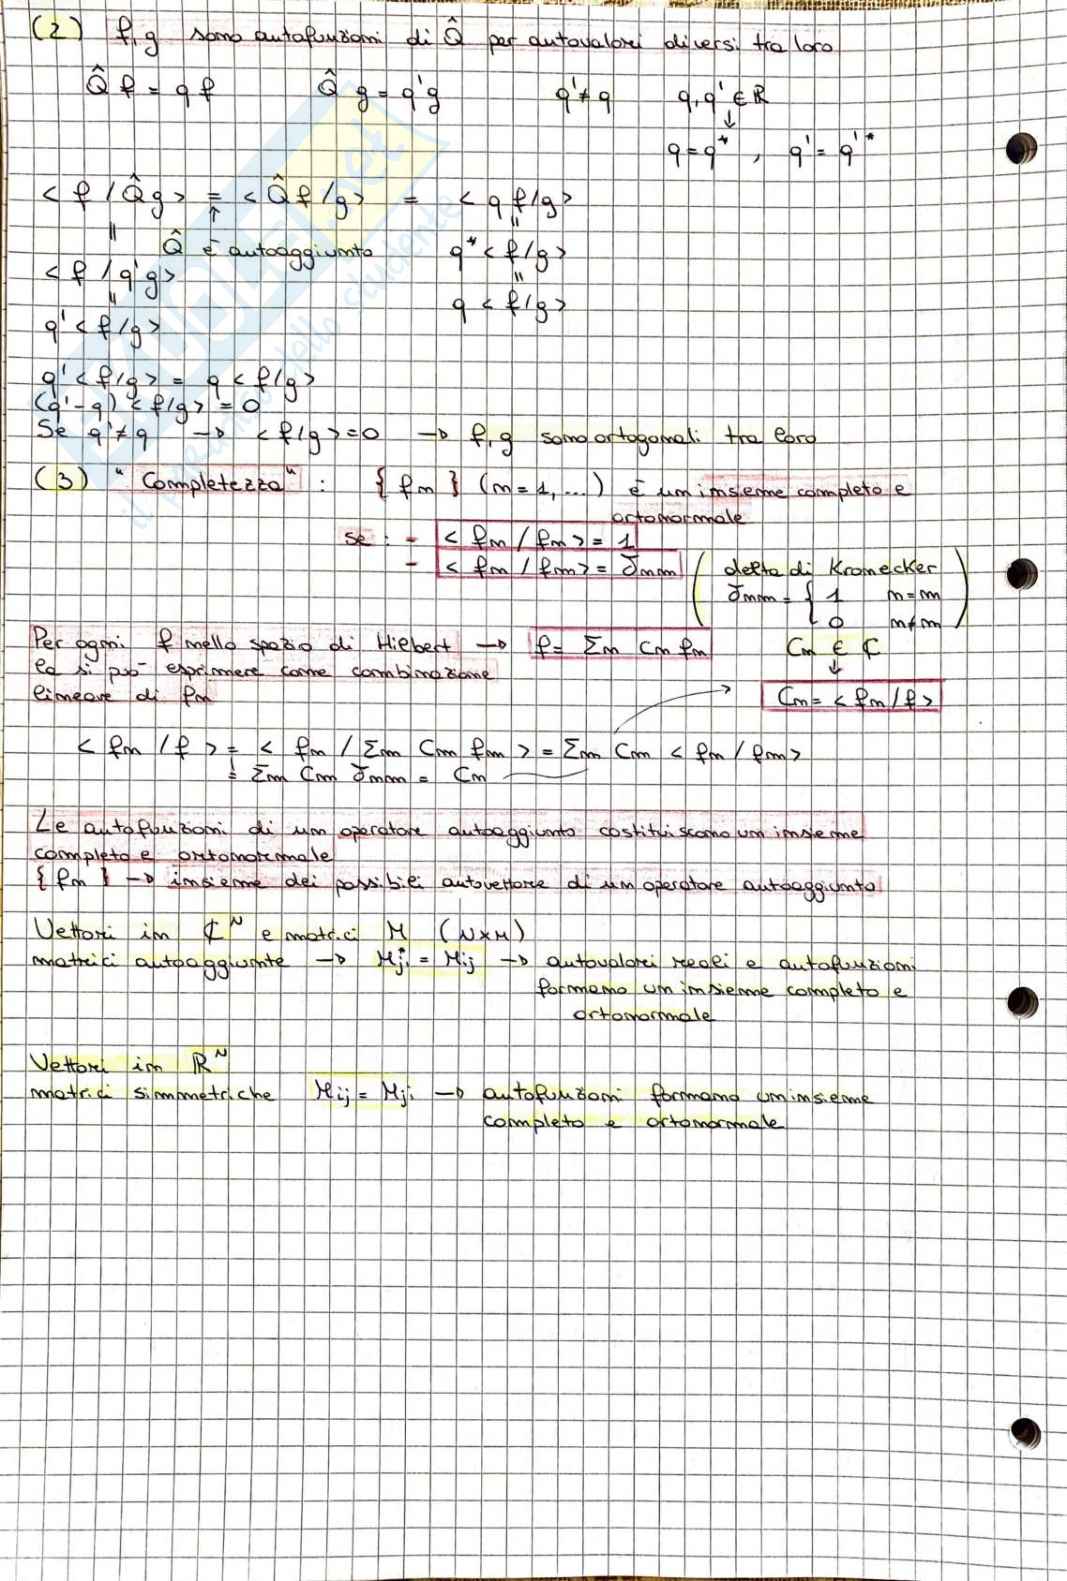 (2) f, g sono autofunzioni di Q̂ per autovalori diversi tra loro
Q̂ f = q f    Q̂ g = q'g    q'≠q    q, q' ∈ ℝ
↓
q=q* , q' = q'*
< f / Q̂g > = < Q̂f / g > = < q f/g >
" ↑ "
Q̂ è autoaggiunto    q*< f/g >
< f / q'g >    "
"    q < f/g >
q' < f/g >
q' < f/g > = q < f/g >
(q'-q) < f/g > = 0
Se q'≠q → < f/g > = 0 → f, g sono ortogonali tra loro
(3) "Completezza" : { fn } (n=1, ...) è un insieme completo e
ortonormale
se : - < fn / fn > = 1
- < fn / fm > = δnm ( delta di Kronecker
δnm = { 1    n=m
0    n≠m )
Per ogni f nello spazio di Hilbert → f = Σn Cn fn    Cn ∈ ℂ
la si può esprimere come combinazione    ↓
lineare di fn    Cn = < fn / f >
< fn / f > = < fn / Σm Cm fm > = Σm Cm < fn / fm >
= Σm Cm δnm = Cn
Le autofunzioni di un operatore autoaggiunto costituiscono un insieme
completo e ortonormale
{ fn } → insieme dei possibili autovettore di un operatore autoaggiunto
Vettori in ℂᴺ e matrici M (N×N)
matrici autoaggiunte → M*ji = Mij → autovalori reali e autofunzioni
formano un insieme completo e
ortonormale
Vettori in ℝᴺ
matrici simmetriche    Mij = Mji → autofunzioni formano un insieme
completo e ortonormale